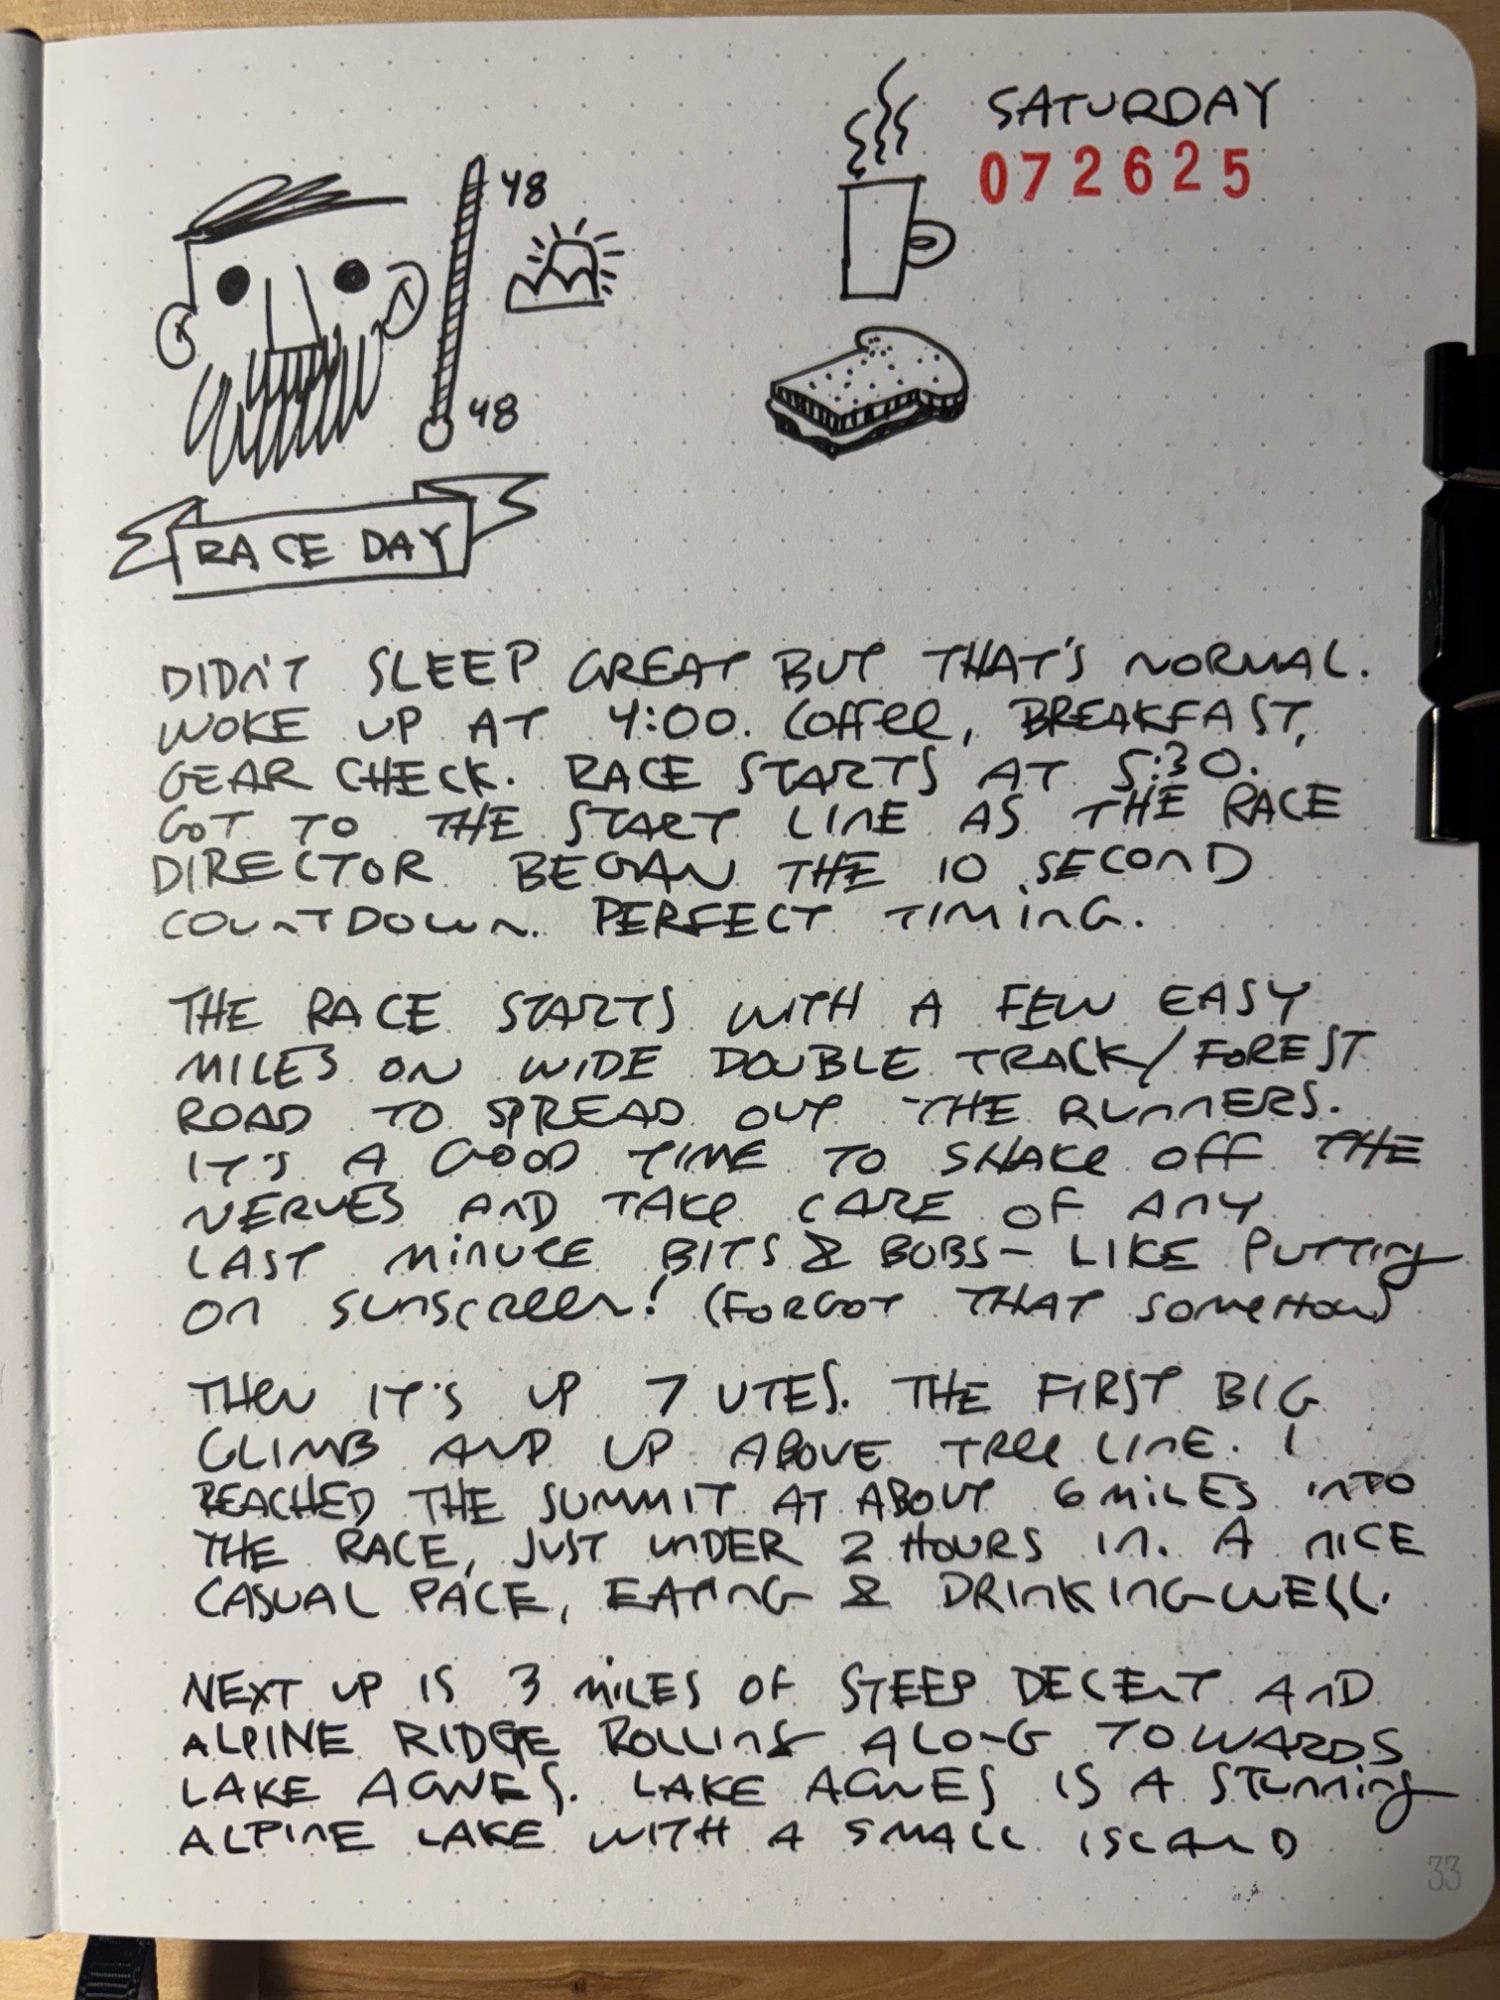 SATURDAY
072625
48
48
RACE DAY
DIDN'T SLEEP GREAT BUT THAT'S NORMAL.
WOKE UP AT 4:00. COFFEE, BREAKFAST,
GEAR CHECK. RACE STARTS AT 5:30.
GOT TO THE START LINE AS THE RACE
DIRECTOR BEGAN THE 10 SECOND
COUNTDOWN. PERFECT TIMING.
THE RACE STARTS WITH A FEW EASY
MILES ON WIDE DOUBLE TRACK/FOREST
ROAD TO SPREAD OUT THE RUNNERS.
IT'S A GOOD TIME TO SHAKE OFF THE
NERVES AND TAKE CARE OF ANY
LAST MINUTE BITS & BOBS - LIKE PUTTING
ON SUNSCREEN! (FORGOT THAT SOMEHOW)
THEN IT'S UP 7 UTES. THE FIRST BIG
CLIMB AND UP ABOVE TREE LINE. I
REACHED THE SUMMIT AT ABOUT 6 MILES INTO
THE RACE, JUST UNDER 2 HOURS IN. A NICE
CASUAL PACE, EATING & DRINKING WELL.
NEXT UP IS 3 MILES OF STEEP DECENT AND
ALPINE RIDGE ROLLING ALONG TOWARDS
LAKE AGNES. LAKE AGNES IS A STUNNING
ALPINE LAKE WITH A SMALL ISLAND
33